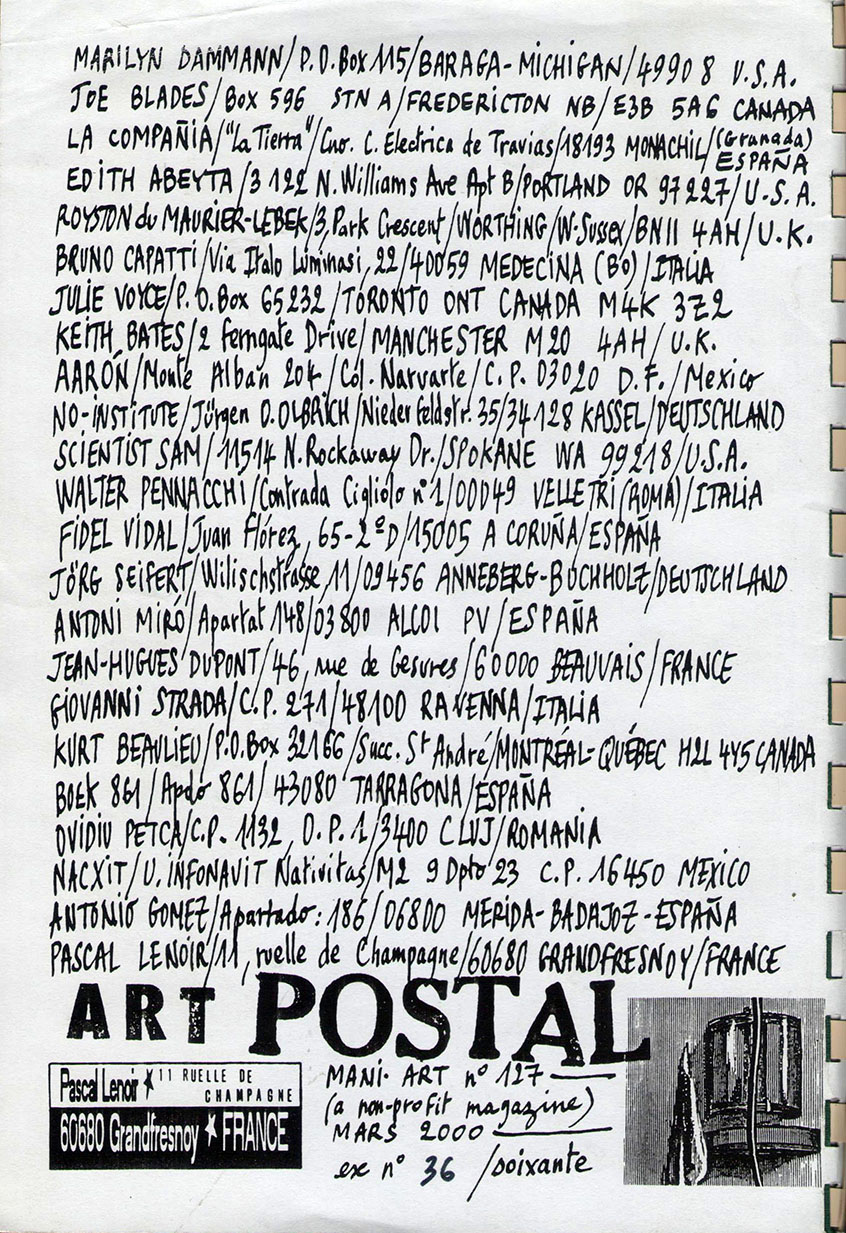 MARILYN DAMMANN/P.O.Box 115/BARAGA-MICHIGAN/49908 U.S.A.
JOE BLADES/Box 596 STN A/FREDERICTON NB/E3B 5A6 CANADA
LA COMPAÑIA/"La Tierra"/Cno. C. Electrica de Travias/18193 MONACHIL/(Granada) ESPAÑA
EDITH ABEYTA/3122 N.Williams Ave Apt B/PORTLAND OR 97227/U.S.A.
ROYSTON du MAURIER-LEBEK/3,Park Crescent/WORTHING/W.Sussex/BN11 4AH/U.K.
BRUNO CAPATTI/Via Italo Luminasi,22/40059 MEDECINA (BO)/ITALIA
JULIE VOYCE/P.O.Box 65232/TORONTO ONT CANADA M4K 3Z2
KEITH BATES/2 Ferngate Drive/MANCHESTER M20 4AH/U.K.
AARÓN/Monte Alban 204/Col. Narvarte/C.P. 03020 D.F./Mexico
NO-INSTITUTE/Jürgen O.OLBRICH/Niederfeldstr.35/34128 KASSEL/DEUTSCHLAND
SCIENTIST SAM/11514 N.Rockaway Dr./SPOKANE WA 99218/U.S.A.
WALTER PENNACCHI/Contrada Cigliolo n°1/00049 VELLETRI(ROMA)/ITALIA
FIDEL VIDAL/Juan Flórez, 65-2ºD/15005 A CORUÑA/ESPAÑA
JÖRG SEIFERT/Wilischstrasse,11/09456 ANNEBERG-BUCHHOLZ/DEUTSCHLAND
ANTONI MIRÓ/Apartat 148/03800 ALCOI PV/ESPAÑA
JEAN-HUGUES DUPONT/46, rue de Gesvres/60000 BEAUVAIS/FRANCE
GIOVANNI STRADA/C.P. 271/48100 RAVENNA/ITALIA
KURT BEAULIEU/P.O.Box 32166/Succ. St André/MONTRÉAL-QUÉBEC H2L 4Y5 CANADA
BOEK 861/Apdo 861/43080 TARRAGONA/ESPAÑA
OVIDIU PETCA/C.P. 1132, O.P.1/3400 CLUJ/ROMANIA
NACXIT/U.INFONAVIT Nativitas/M2 9 Dpto 23 C.P. 16450 MEXICO
ANTONIO GOMEZ/Apartado: 186/06800 MERIDA-BADAJOZ-ESPAÑA
PASCAL LENOIR/11, ruelle de Champagne/60680 GRANDFRESNOY/FRANCE
ART POSTAL
Pascal Lenoir 11 RUELLE DE CHAMPAGNE
60680 Grandfresnoy FRANCE
MANI-ART n° 127
(a non-profit magazine)
MARS 2000
ex n° 36 /soixante